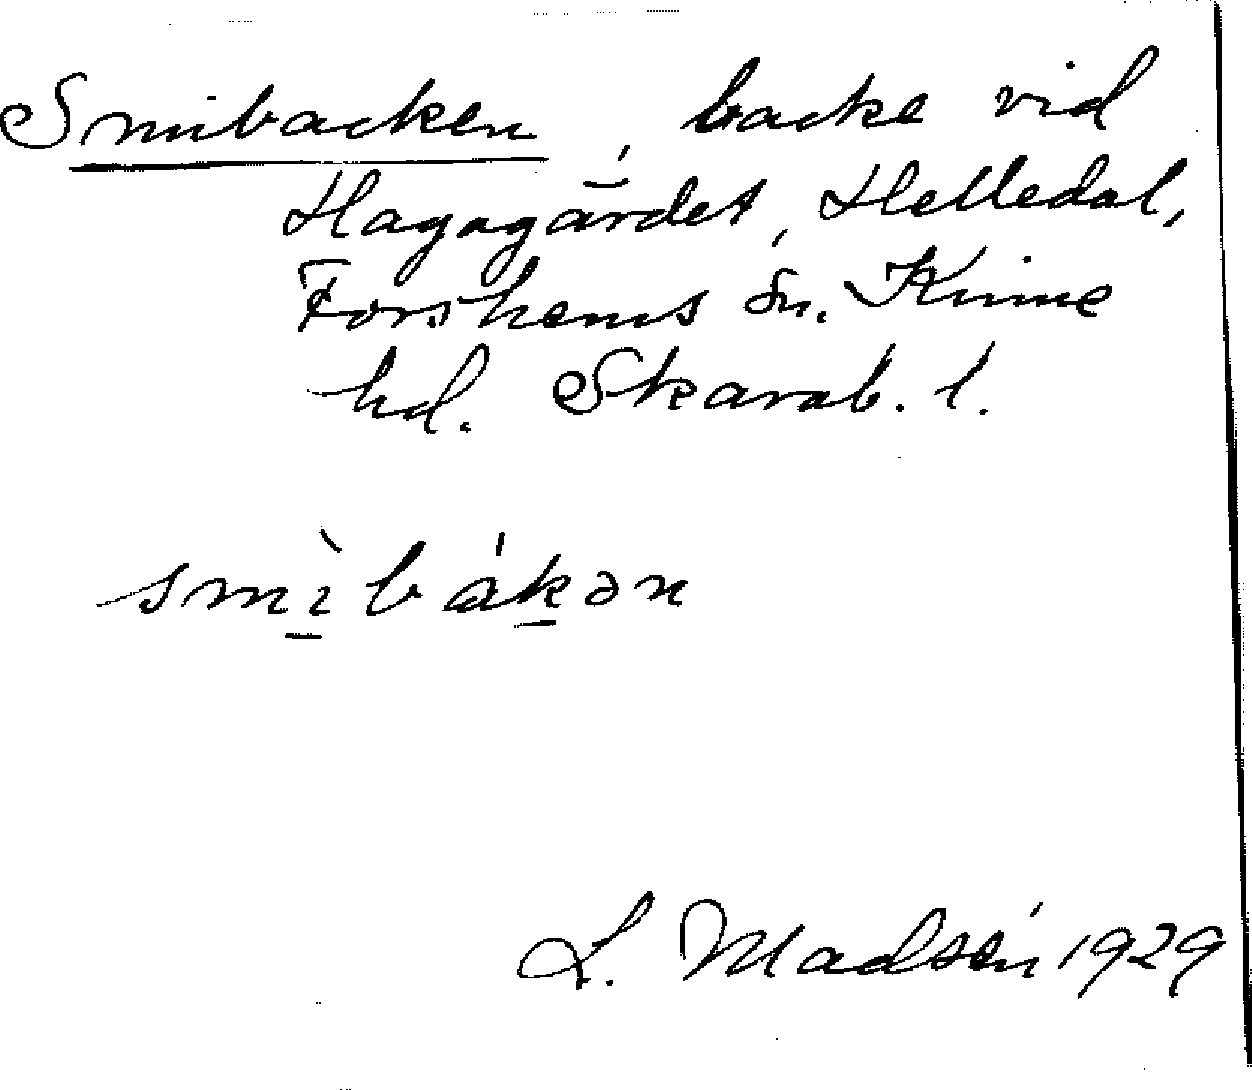 Smibacken, backe vid
Hagagärdet, Helledal,
Forshems sn. Kinne
hd. Skarab. l.
smìbákən
L. Madsén 1929